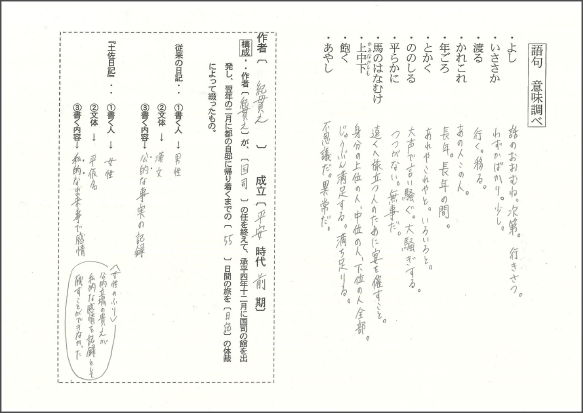 語句 意味調べ
・よし 話のおおむね。次第。行きさつ。
・いささか わずかばかり。少し。
・渡る 行く。移る。
・かれこれ あの人この人。
・年ごろ 長年。長年の間。
・とかく あれやこれやと。いろいろと。
・ののしる 大声で言い騒ぐ。大騒ぎする。
・平らかに つつがない。無事だ。
・馬のはなむけ 遠くへ旅立つ人のために宴を催すこと。
・上中下 身分の上位の人、中位の人、下位の人全部。
・飽く じゅうぶん満足する。満ち足りる。
・あやし 不思議だ。異常だ。
作者〔 紀貫之 〕 成立〔 平安 時代 前 期〕
構成・・作者〔 紀貫之 〕が、〔 国司 〕の任を終えて、承平四年十二月に国司の館を出
発し、翌年の二月に都の自邸に帰り着くまでの〔 55 〕日間の旅を〔 日記 〕の体裁
によって綴ったもの。
従来の日記・・①書く人 → 男性
②文体 → 漢文
③書く内容 → 公的な事実の記録
『土佐日記』・・①書く人 → 女性
②文体 → 平仮名
③書く内容 → 私的な出来事で感情
〈女性のふり〉
公的立場の貫之が
私的な感情を記録として
残すことができなかった